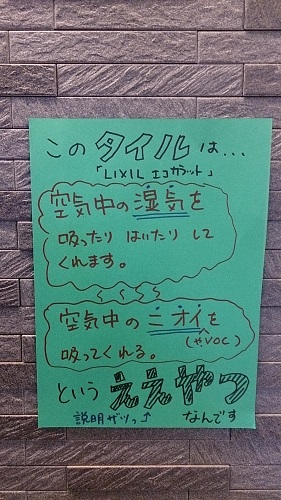 このタイルは...
「LIXIL エコカラット」
空気中の湿気を
吸ったり はいたり して
くれます。
空気中のニオイを
(やVOC)
吸ってくれる。
という ええやつ
説明ザツっ なんです